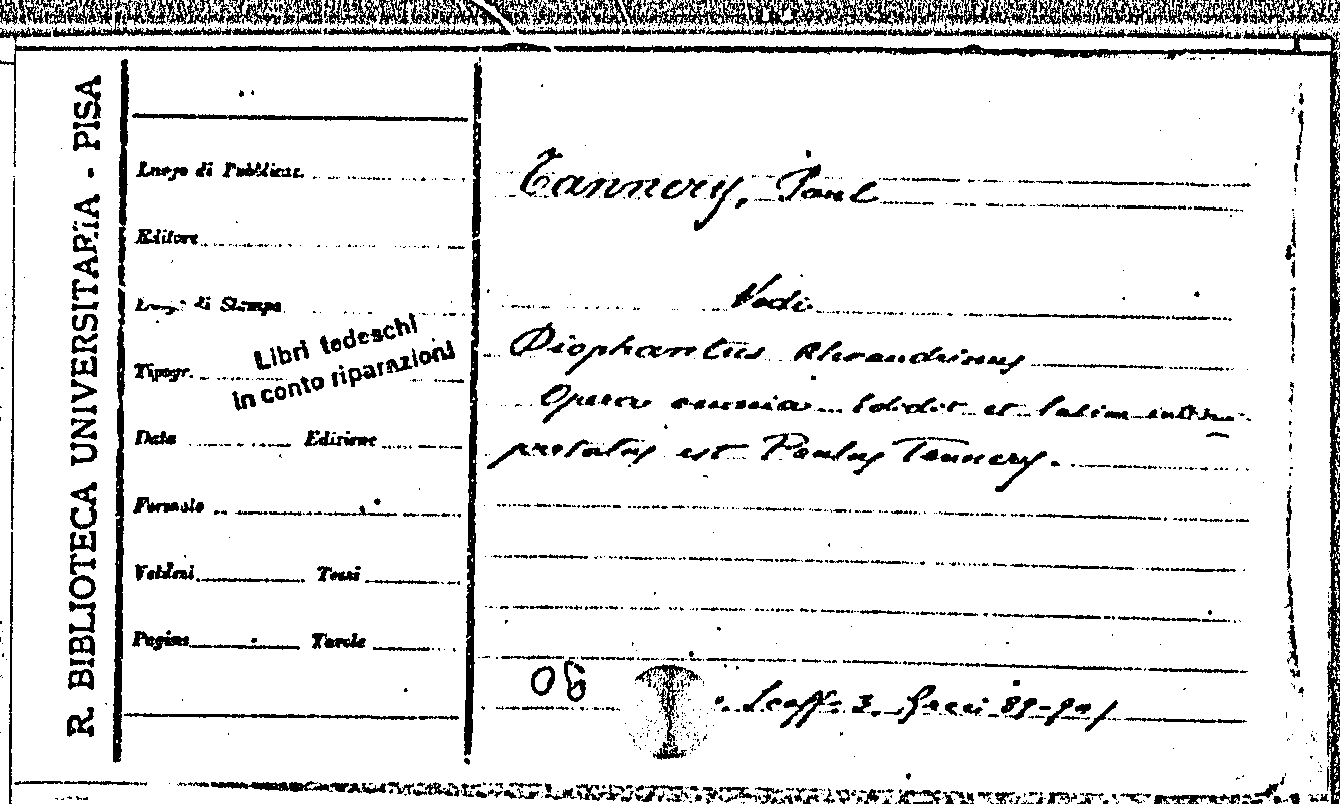 R. BIBLIOTECA UNIVERSITARIA - PISA
Luogo di Pubblicaz.
Editore
Luogo di Stampa
Tipogr.
Libri tedeschi
in conto riparazioni
Data Edizione
Formato
Volumi Tomi
Pagine Tavole
Tannery, Paul
Vedi
Diophantus Alexandrinus
Opera omnia Edidit et latine inter-
pretatus est Paulus Tannery.
Scaff. 3. Greci 89-90/